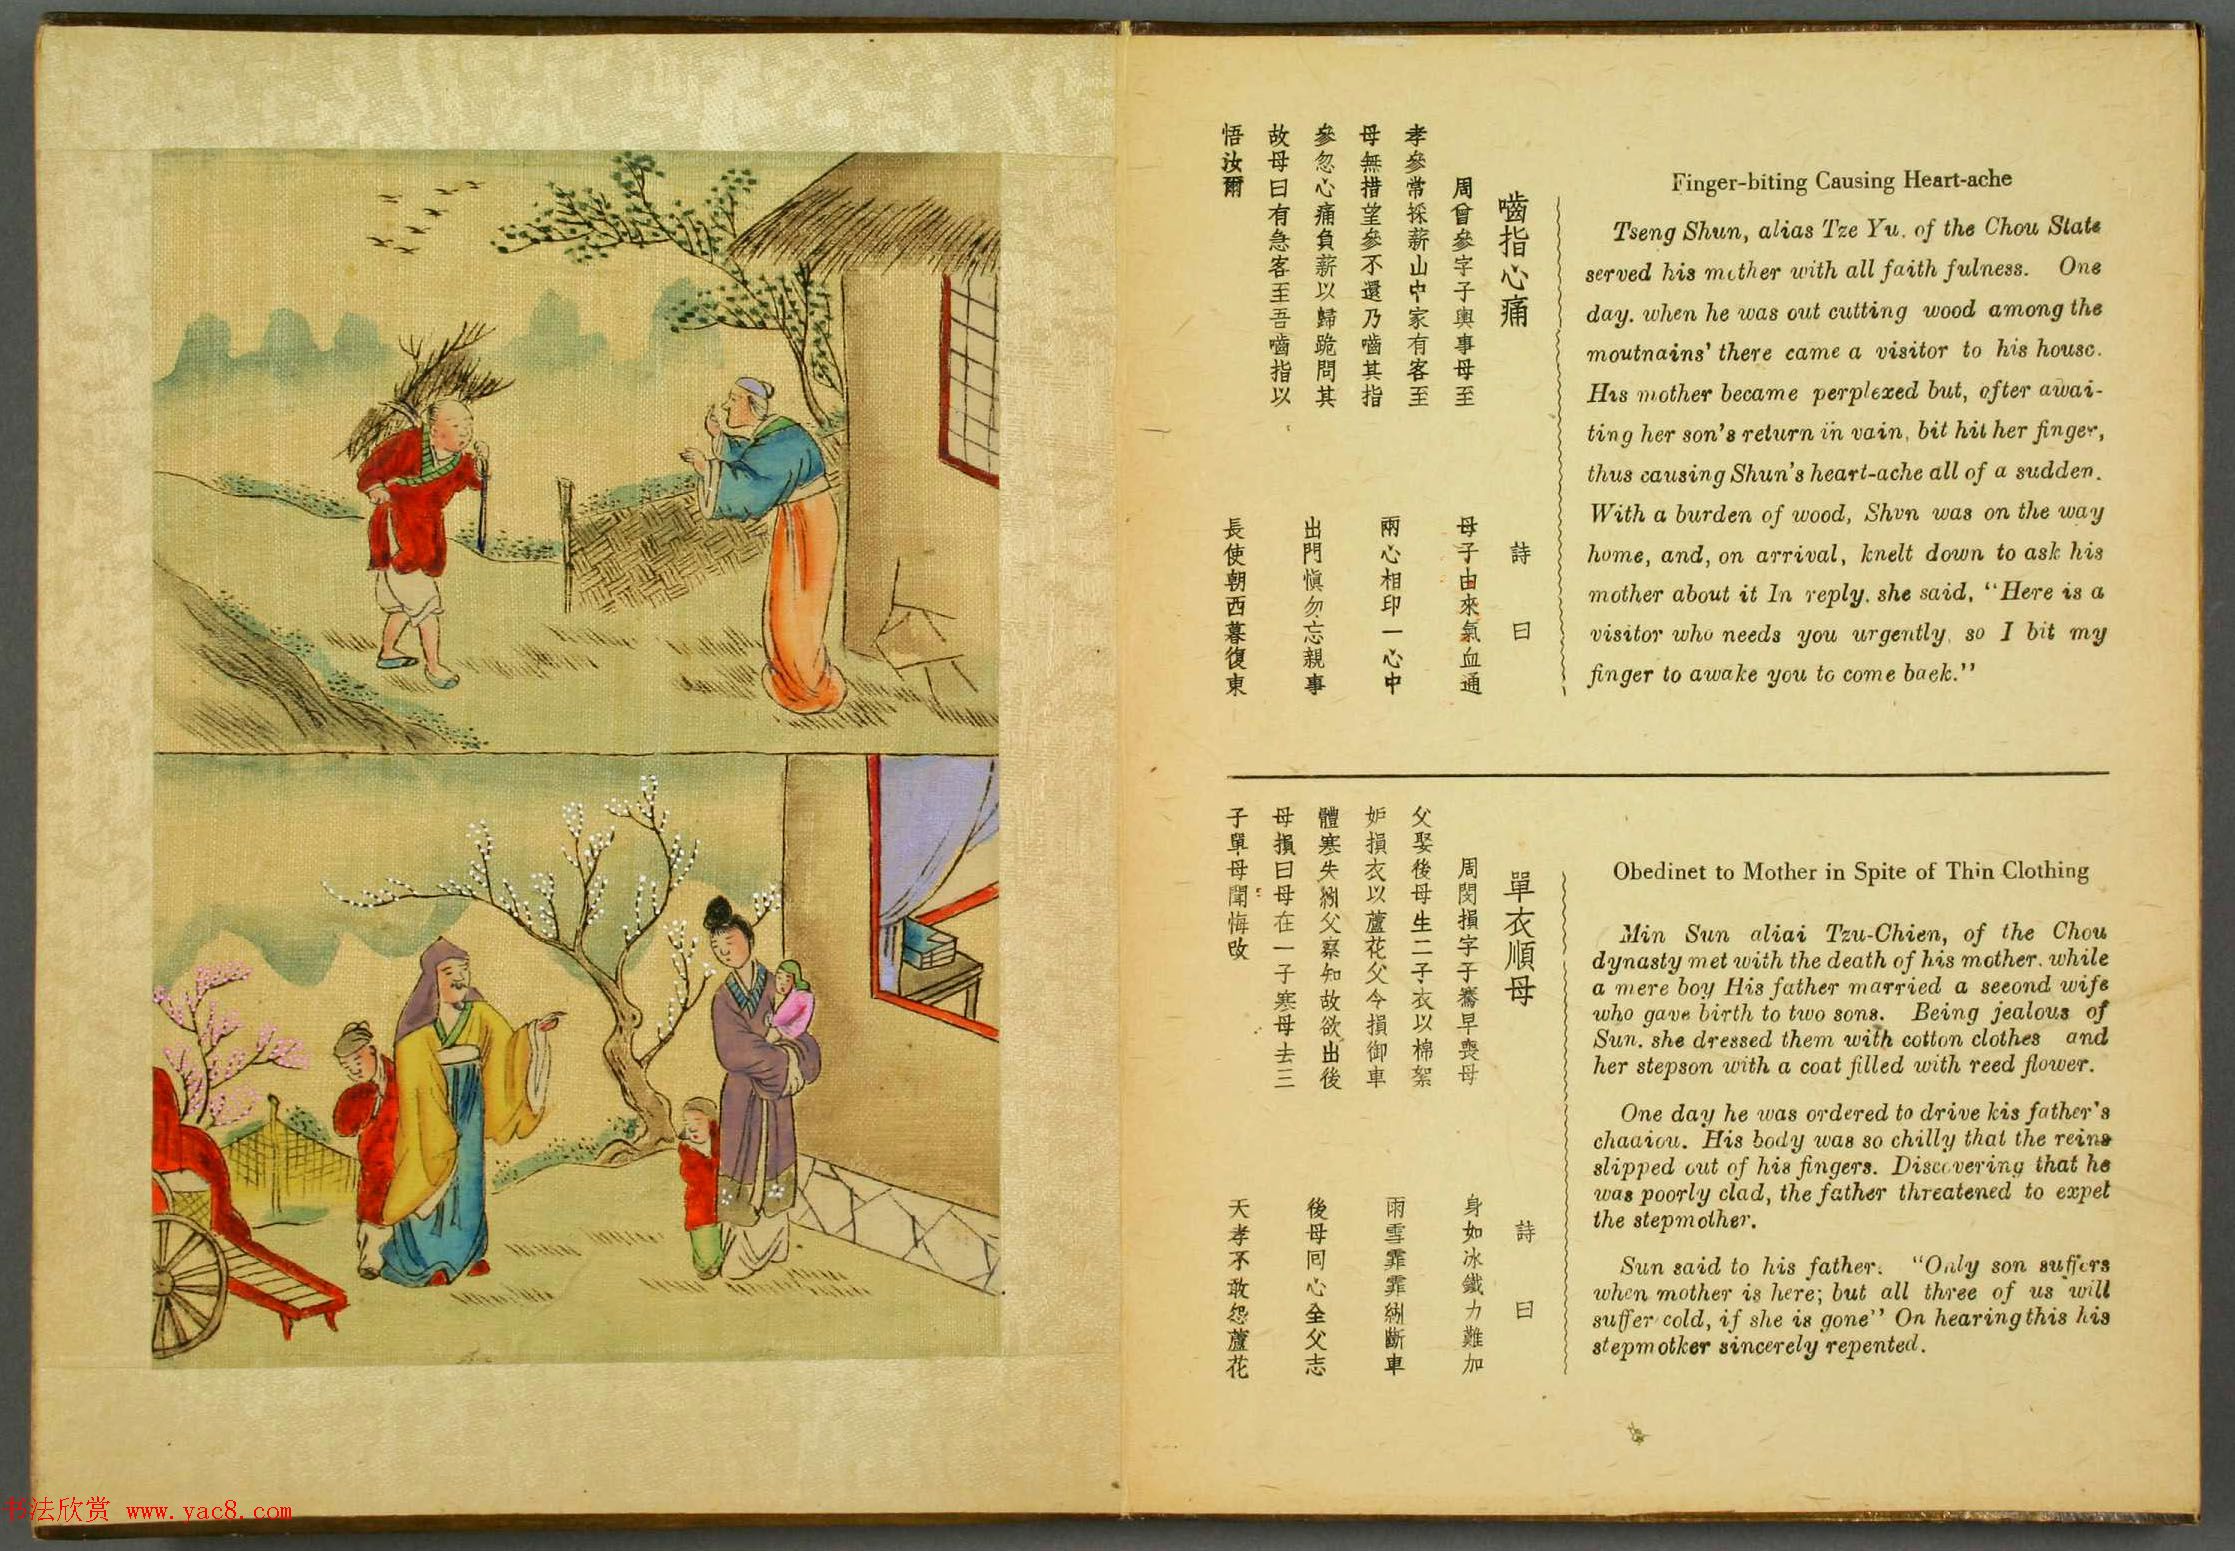 Finger-biting Causing Heart-ache
Tseng Shun, alias Tze Yu. of the Chou State
served his mother with all faith fulness. One
day. when he was out cutting wood among the
moutnains' there came a visitor to his house.
His mother became perplexed but, ofter awai-
ting her son's return in vain, bit hit her finger,
thus causing Shun's heart-ache all of a sudden.
With a burden of wood, Shvn was on the way
home, and, on arrival, knelt down to ask his
mother about it In reply. she said, "Here is a
visitor who needs you urgently, so I bit my
finger to awake you to come baek."
嚙指心痛
周曾參字子輿事母至
孝參常採薪山中家有客至
母無措望參不還乃嚙其指
參忽心痛負薪以歸跪問其
故母曰有急客至吾嚙指以
悟汝爾
詩曰
母子由來氣血通
兩心相印一心中
出門愼勿忘親事
長使朝西暮復東
Obedinet to Mother in Spite of Thin Clothing
Min Sun aliai Tzu-Chien, of the Chou
dynasty met with the death of his mother. while
a mere boy His father married a seeond wife
who gave birth to two sons. Being jealous of
Sun. she dressed them with cotton clothes and
her stepson with a coat filled with reed flower.
One day he was ordered to drive kis father's
chaaiou. His body was so chilly that the reins
slipped out of his fingers. Discovering that he
was poorly clad, the father threatened to expet
the stepmother.
Sun said to his father. "Only son suffers
when mother is here; but all three of us will
suffer cold, if she is gone" On hearing this his
stepmotker sincerely repented.
單衣順母
周閔損字子騫早喪母
父娶後母生二子衣以棉絮
妒損衣以蘆花父令損御車
體寒失綱父察知故欲出後
母損曰母在一子寒母去三
子單母聞悔改
詩曰
身如冰鐵力難加
雨雪霏霏綱斷車
後母囘心全父志
天孝不敢怨蘆花
书法欣赏 www.yac8.com